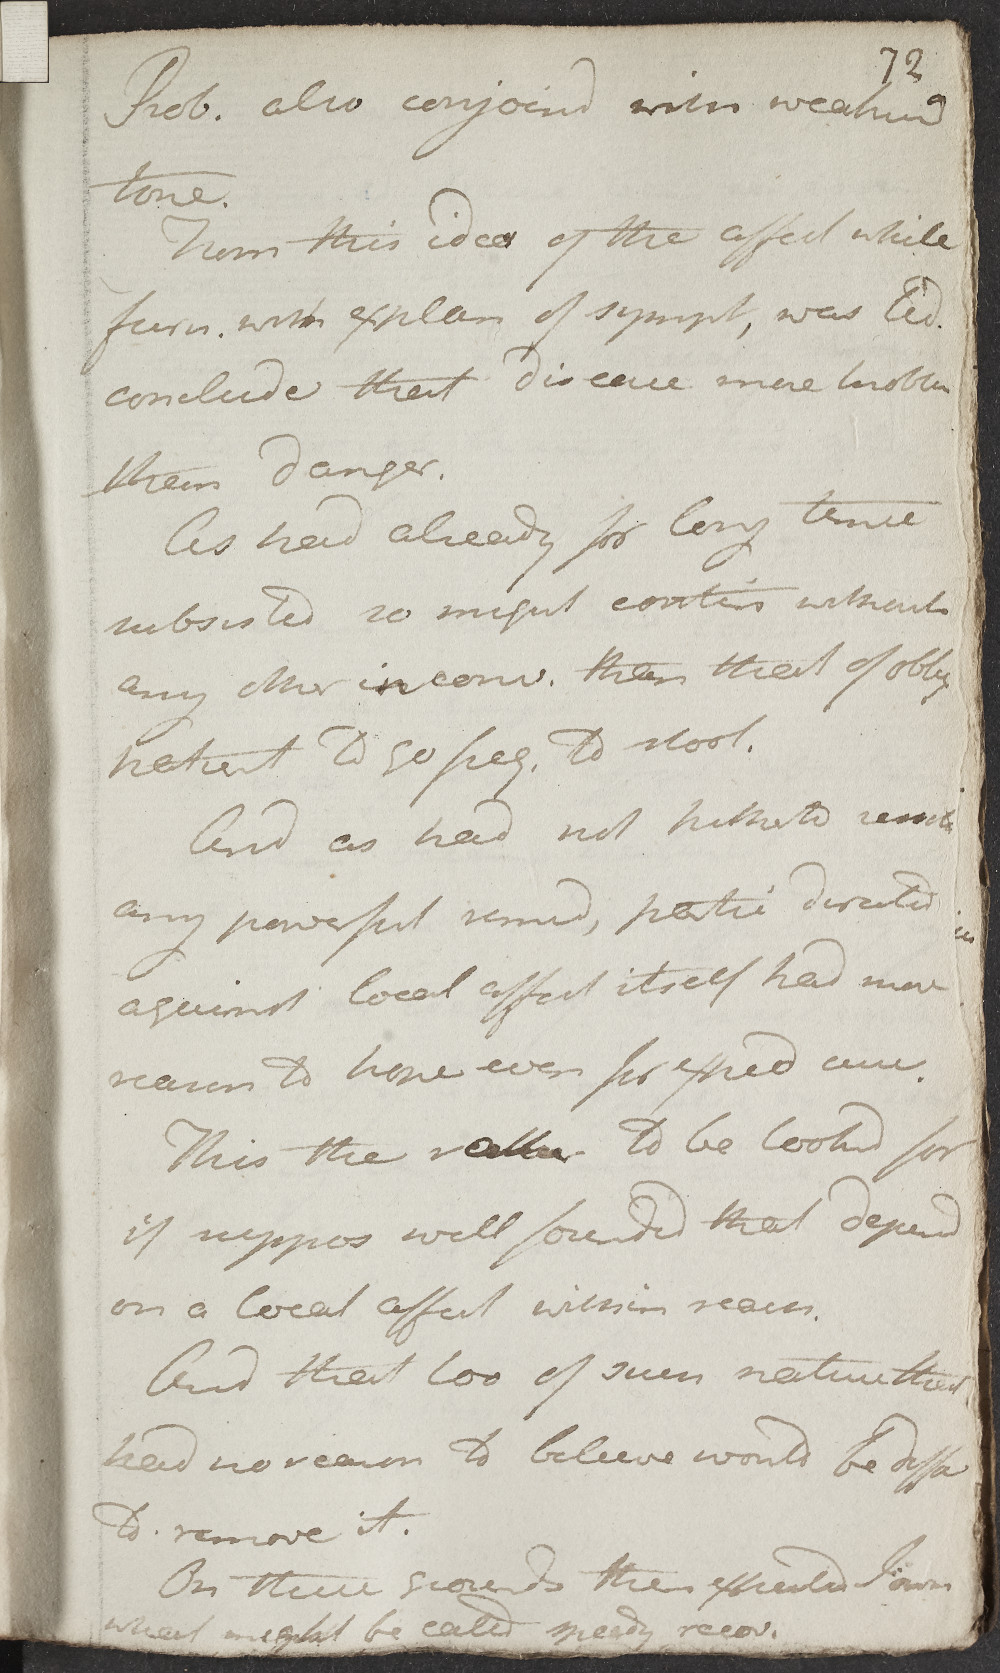 72
Prob. also conjoind with weakend
tone.
From this idea of the affect while
furn. with explan of sympt, was led
conclude that disease more troblen
then danger.
As had already for long time
subsisted so might contin without
any other inconv. then that of oblig
patient to go freq. to stool.
And as had not hitherto
any powerful remed, partic directed
against local affect itself had more
reason to hope even for speed cure.
This the rather to be lookd for
if suppos well founded that depend
on a local affect within reach.
And that too of such nature that
had no reason to beleeve would be diffic
to remove it.
On these grounds then expected I own
what might be called speedy recov.